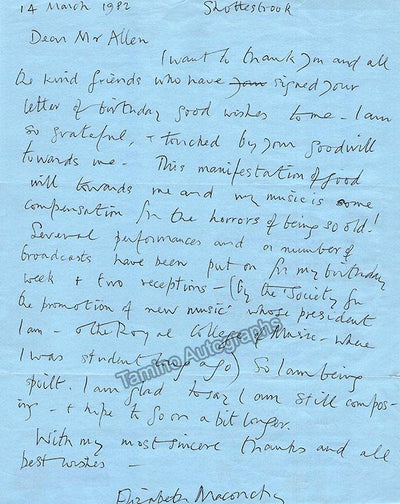 14 March 1982 Shottesbrook
Dear Mr Allen
I want to thank you and all
the kind friends who have your signed your
letter of birthday good wishes to me – I am
so grateful, + touched by your goodwill
towards me – This manifestation of good
will towards me and my music is some
compensation for the horrors of being so old!
Several performances and a number of
broadcasts have been put on for my birthday
week + two receptions – (by the Society for
the promotion of new music whose president
I am – + the Royal College of Music – where
I was student long ago) So I am being
spoilt. I am glad to say I am still compos-
ing – + hope to go on a bit longer.
With my most sincere thanks and all
best wishes –
Elizabeth Maconchy
Tamino Autographs